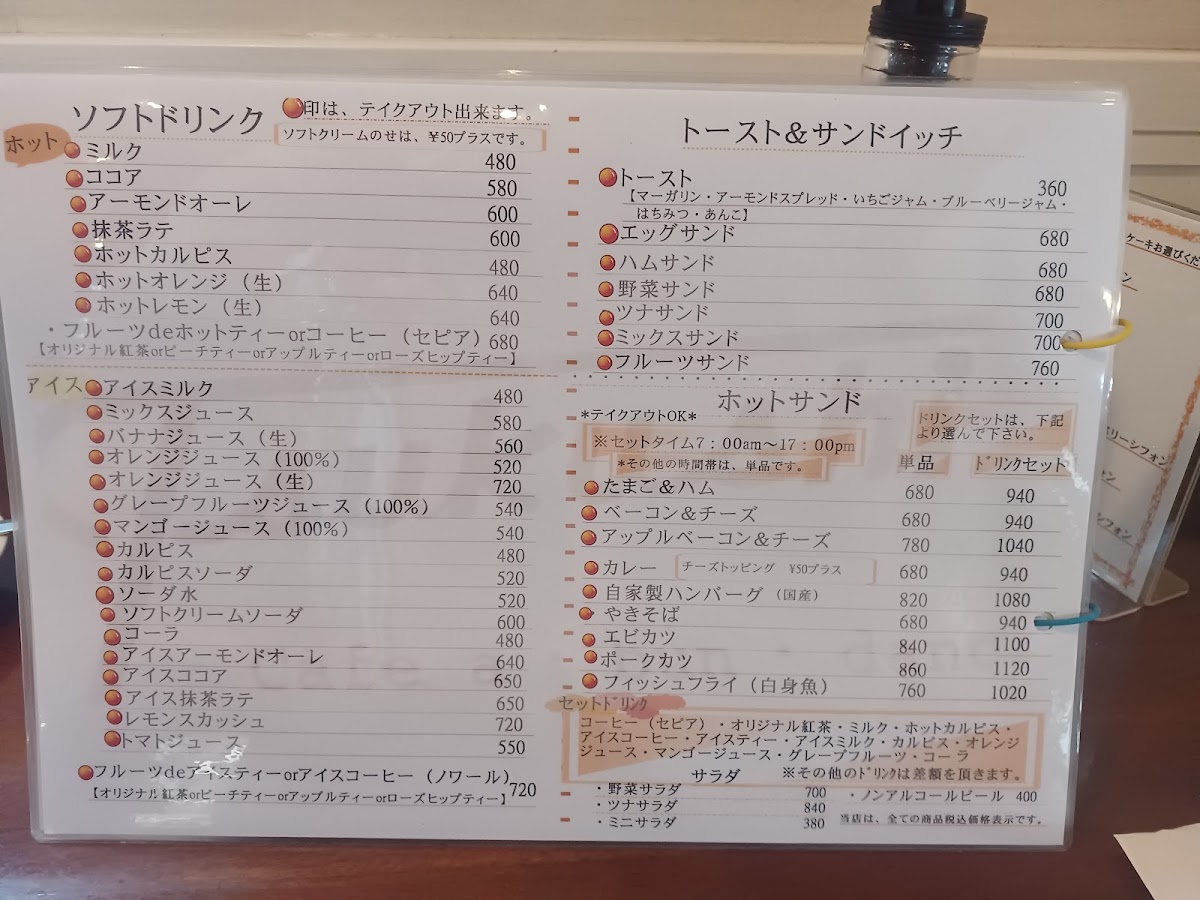 ソフトドリンク
印は、テイクアウト出来ます。
ソフトクリームのせは、¥50プラスです。
ホット
ミルク 480
ココア 580
アーモンドオーレ 600
抹茶ラテ 600
ホットカルピス 480
ホットオレンジ（生） 640
ホットレモン（生） 640
・フルーツdeホットティーorコーヒー（セピア） 680
【オリジナル紅茶orピーチティーorアップルティーorローズヒップティー】
アイス
アイスミルク 480
ミックスジュース 580
バナナジュース（生） 560
オレンジジュース（100%） 520
オレンジジュース（生） 720
グレープフルーツジュース（100%） 540
マンゴージュース（100%） 540
カルピス 480
カルピスソーダ 520
ソーダ水 520
ソフトクリームソーダ 600
コーラ 480
アイスアーモンドオーレ 640
アイスココア 650
アイス抹茶ラテ 650
レモンスカッシュ 720
トマトジュース 550
フルーツdeアイスティーorアイスコーヒー（ノワール） 720
【オリジナル紅茶orピーチティーorアップルティーorローズヒップティー】
トースト＆サンドイッチ
トースト 360
【マーガリン・アーモンドスプレッド・いちごジャム・ブルーベリージャム・
はちみつ・あんこ】
エッグサンド 680
ハムサンド 680
野菜サンド 680
ツナサンド 700
ミックスサンド 700
フルーツサンド 760
ホットサンド
*テイクアウトOK*
※セットタイム7：00am～17：00pm
*その他の時間帯は、単品です。
ドリンクセットは、下記
より選んで下さい。
単品 ドリンクセット
たまご＆ハム 680 940
ベーコン＆チーズ 680 940
アップルベーコン＆チーズ 780 1040
カレー チーズトッピング ¥50プラス 680 940
自家製ハンバーグ（国産） 820 1080
やきそば 680 940
エビカツ 840 1100
ポークカツ 860 1120
フィッシュフライ（白身魚） 760 1020
セットドリンク
コーヒー（セピア）・オリジナル紅茶・ミルク・ホットカルピス・
アイスコーヒー・アイスティー・アイスミルク・カルピス・オレンジ
ジュース・マンゴージュース・グレープフルーツ・コーラ
※その他のドリンクは差額を頂きます。
サラダ
・野菜サラダ 700
・ツナサラダ 840
・ミニサラダ 380
・ノンアルコールビール 400
当店は、全ての商品税込価格表示です。
ケーキお選びくだ
シフォン